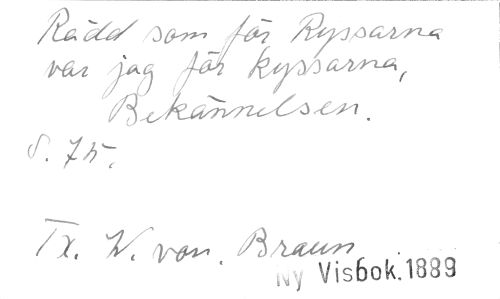 Rädd som för Ryssarna
var jag för kyssarna,
Bekännelsen.
S. 75.
Tx. W. von. Braun
Ny Visbok. 1889